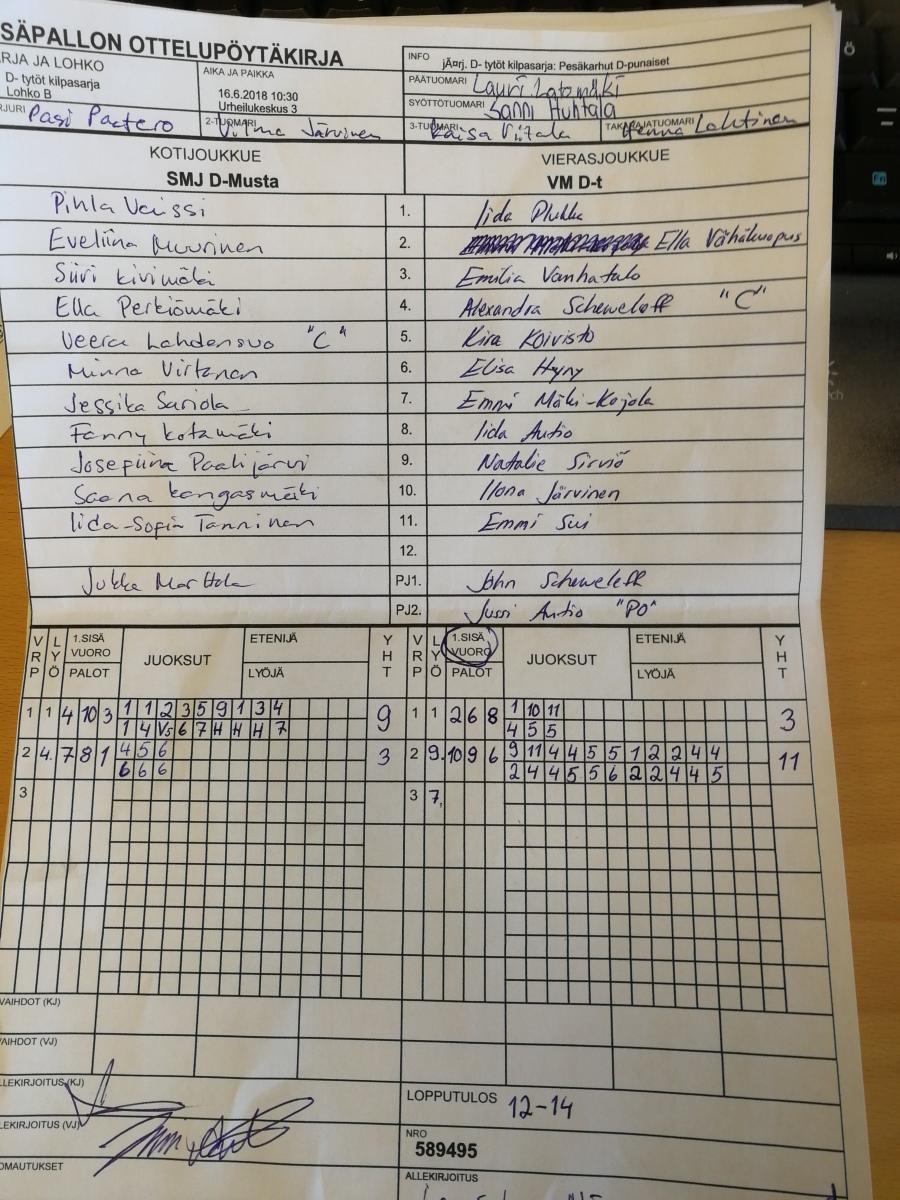 SÄPALLON OTTELUPÖYTÄKIRJA
RJA JA LOHKO
D- tytöt kilpasarja
Lohko B
AIKA JA PAIKKA
16.6.2018 10:30
Urheilukeskus 3
INFO jÄ¤rj. D- tytöt kilpasarja: Pesäkarhut D-punaiset
PÄÄTUOMARI Lauri Latomäki
SYÖTTÖTUOMARI Sanni Huhtala
RJURI Pasi Paatero
2-TUOMARI Vilma Järvinen
3-TUOMARI Kaisa Viitala
TAKARAJATUOMARI Henna Lahtinen
KOTIJOUKKUE
SMJ D-Musta
VIERASJOUKKUE
VM D-t
Pihla Vaissi 1. Iida Plukka
Eveliina Muurinen 2. Ella Vähäkuopus
Siiri Kivimäki 3. Emilia Vanhatalo
Ella Perkiömäki 4. Alexandra Scheweleff "C"
Veera Lahdensuo "C" 5. Kira Koivisto
Minna Virtanen 6. Elisa Hyny
Jessika Sariola 7. Emmi Mäki-Kojola
Fanny Kotamäki 8. Iida Autio
Josepiina Paalijärvi 9. Natalie Sirviö
Saana Kangasmäki 10. Ilona Järvinen
Iida-Sofia Tanninen 11. Emmi Sui
12.
Jukka Marttala PJ1. John Scheweleff
PJ2. Jussi Autio "PO"
VRP LYÖ 1.SISÄ VUORO PALOT JUOKSUT ETENIJÄ LYÖJÄ YHT VRP LYÖ 1.SISÄ VUORO PALOT JUOKSUT ETENIJÄ LYÖJÄ YHT
1 1 4 10 3 1 1 2 3 5 9 1 3 4 9 1 1 2 6 8 1 10 11 3
1 4 V5 6 7 H H H 7 4 5 5
2 4. 7 8 1 4 5 6 3 2 9. 10 9 6 9 11 4 4 5 5 1 2 2 4 4 11
6 6 6 2 4 4 5 5 6 2 2 4 4 5
3 3 7.
VAIHDOT (KJ)
VAIHDOT (VJ)
LLEKIRJOITUS (KJ)
LEKIRJOITUS (VJ)
OMAUTUKSET
LOPPUTULOS 12-14
NRO
589495
ALLEKIRJOITUS